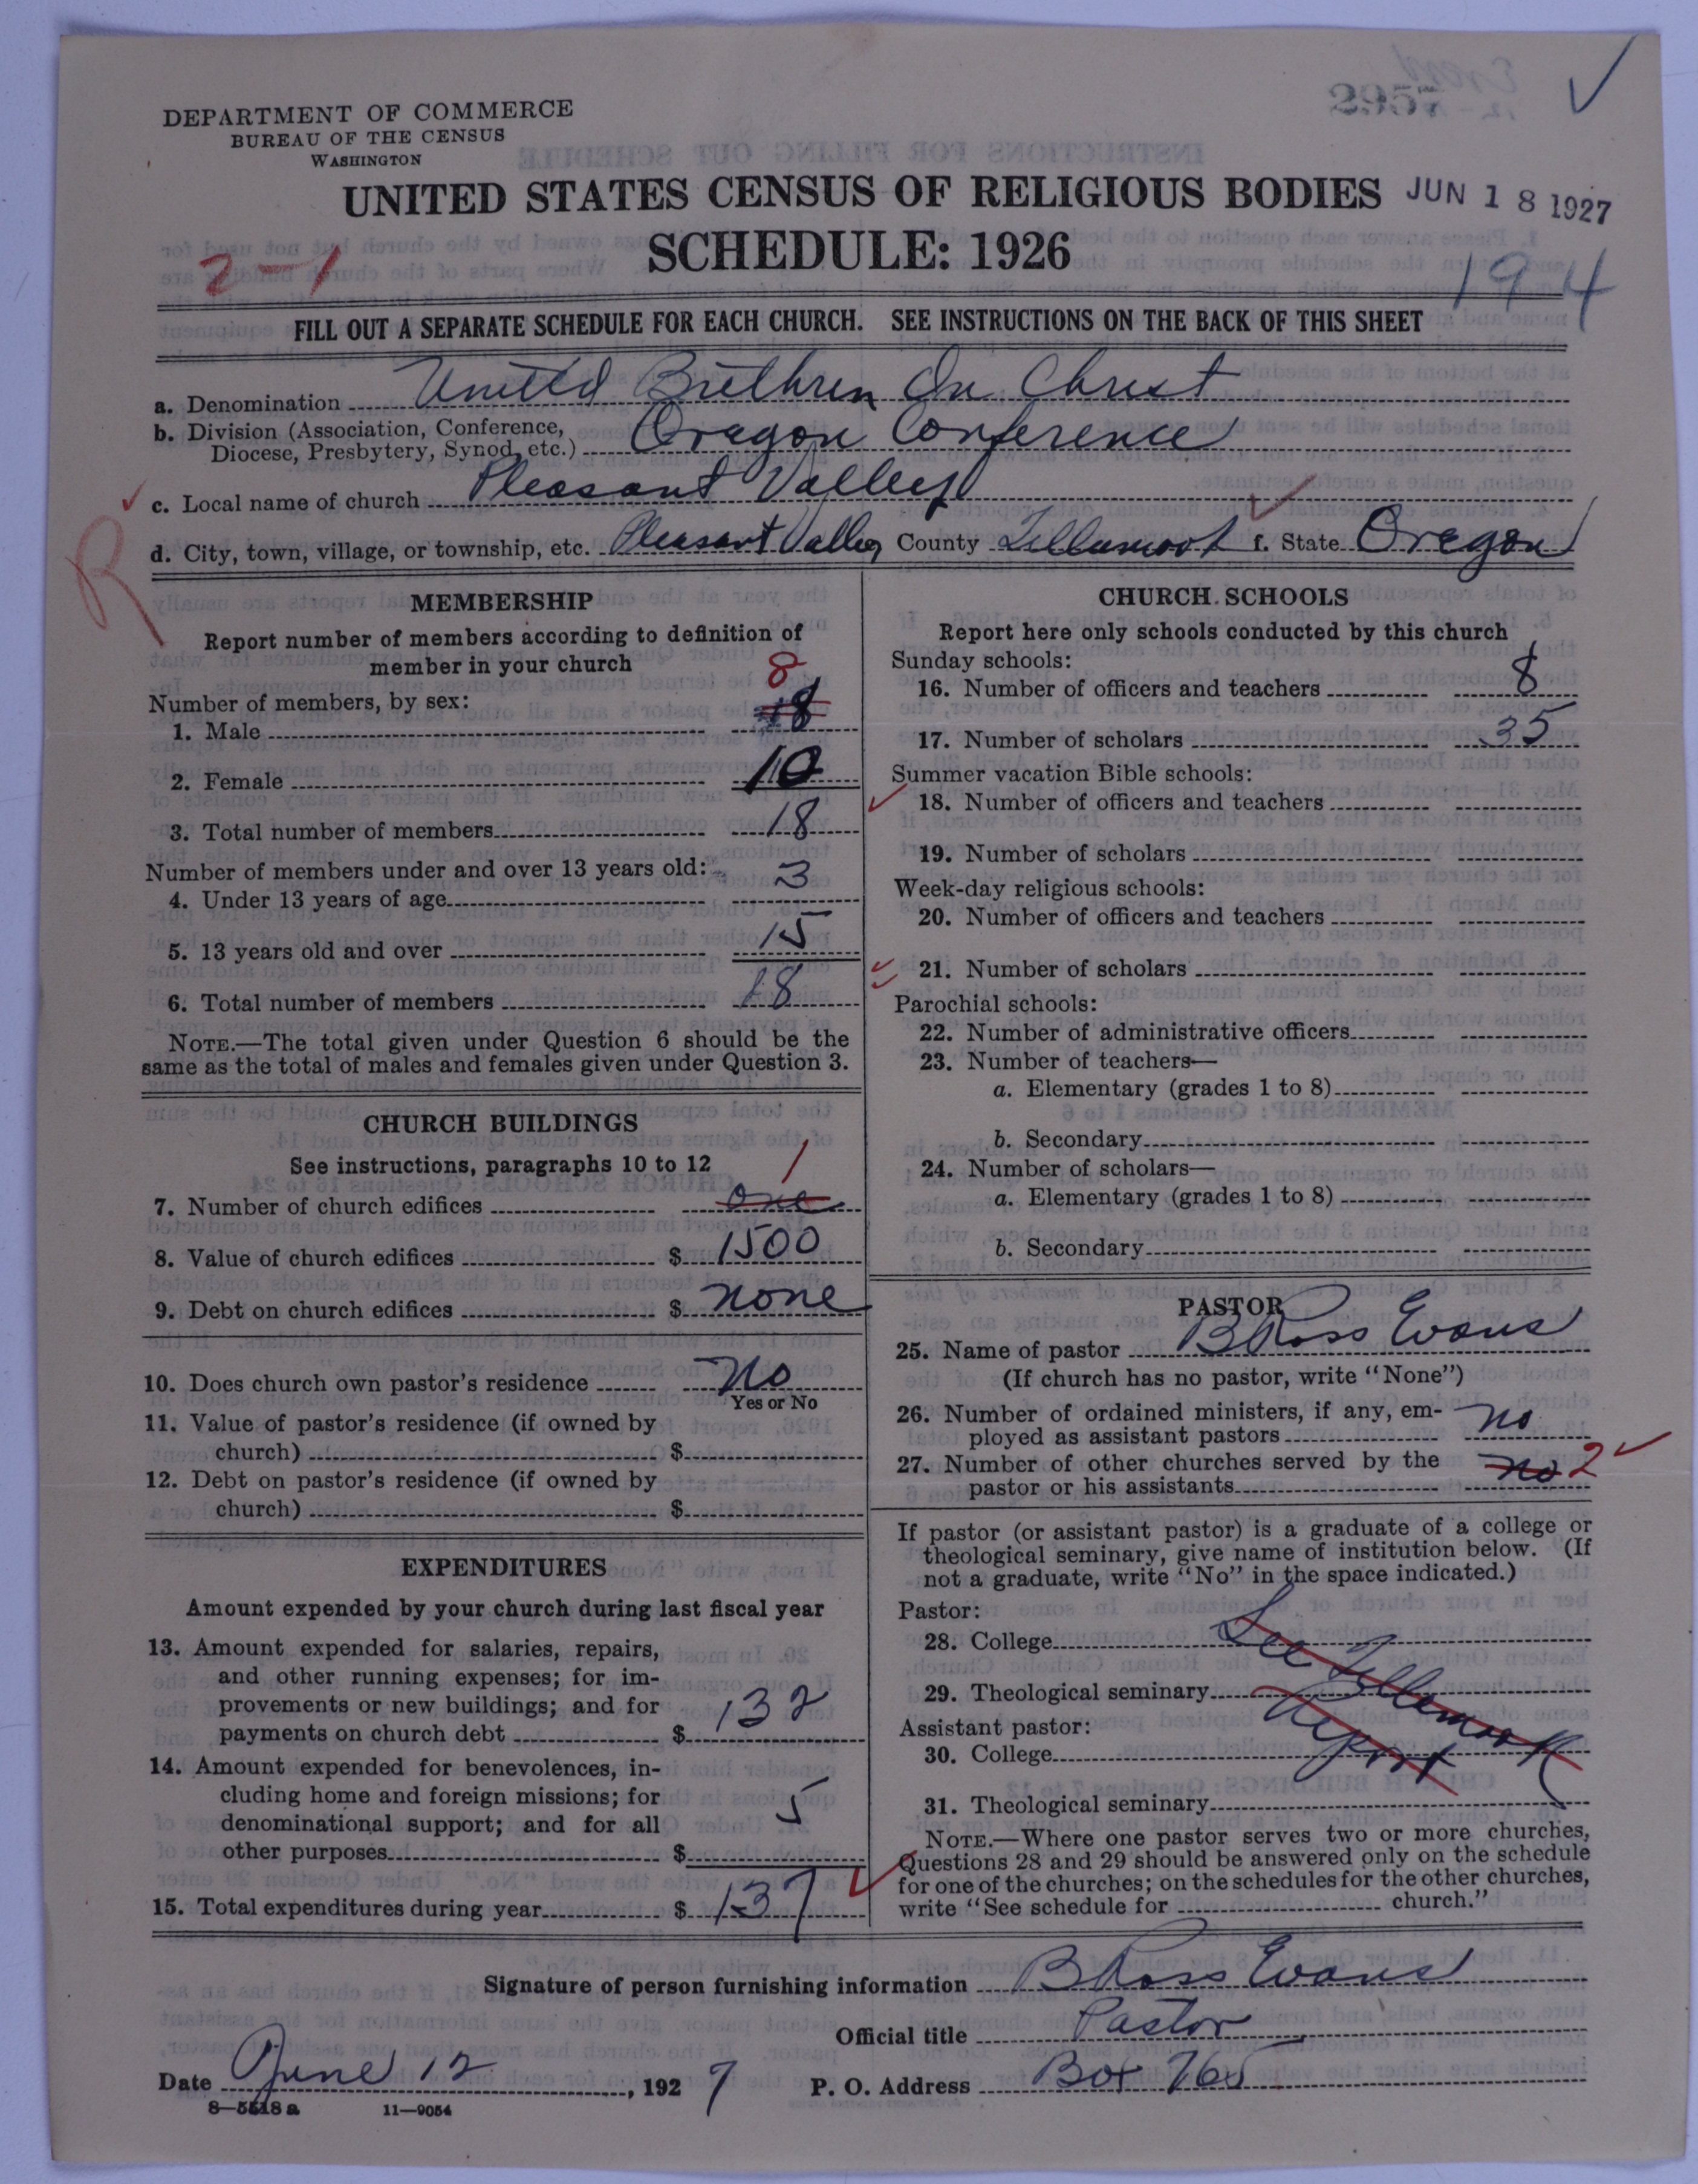 DEPARTMENT OF COMMERCE
BUREAU OF THE CENSUS
WASHINGTON
UNITED STATES CENSUS OF RELIGIOUS BODIES JUN 18 1927
SCHEDULE: 1926
2-1
194
FILL OUT A SEPARATE SCHEDULE FOR EACH CHURCH. SEE INSTRUCTIONS ON THE BACK OF THIS SHEET
a. Denomination United Brethren In Christ
b. Division (Association, Conference,
Diocese, Presbytery, Synod, etc.) Oregon Conference
c. Local name of church Pleasant Valley
R
d. City, town, village, or township, etc. Pleasant Valley County Tillamook f. State Oregon
MEMBERSHIP
Report number of members according to definition of
member in your church
Number of members, by sex:
8
1. Male 18
2. Female 10
3. Total number of members 18
Number of members under and over 13 years old:
4. Under 13 years of age 3
5. 13 years old and over 15
6. Total number of members 18
NOTE.—The total given under Question 6 should be the
same as the total of males and females given under Question 3.
CHURCH BUILDINGS
See instructions, paragraphs 10 to 12
1
7. Number of church edifices one
8. Value of church edifices $ 1500
9. Debt on church edifices $ none
10. Does church own pastor's residence No
Yes or No
11. Value of pastor's residence (if owned by
church) $
12. Debt on pastor's residence (if owned by
church) $
EXPENDITURES
Amount expended by your church during last fiscal year
13. Amount expended for salaries, repairs,
and other running expenses; for im-
provements or new buildings; and for
payments on church debt $ 132
14. Amount expended for benevolences, in-
cluding home and foreign missions; for
denominational support; and for all
other purposes $ 5
15. Total expenditures during year $ 137
CHURCH SCHOOLS
Report here only schools conducted by this church
Sunday schools:
16. Number of officers and teachers 8
17. Number of scholars 35
Summer vacation Bible schools:
18. Number of officers and teachers
19. Number of scholars
Week-day religious schools:
20. Number of officers and teachers
21. Number of scholars
Parochial schools:
22. Number of administrative officers
23. Number of teachers—
a. Elementary (grades 1 to 8)
b. Secondary
24. Number of scholars—
a. Elementary (grades 1 to 8)
b. Secondary
PASTOR
25. Name of pastor B Ross Evans
(If church has no pastor, write "None")
26. Number of ordained ministers, if any, em-
ployed as assistant pastors no
27. Number of other churches served by the
pastor or his assistants no 2
If pastor (or assistant pastor) is a graduate of a college or
theological seminary, give name of institution below. (If
not a graduate, write "No" in the space indicated.)
Pastor:
28. College
See Tillamook
29. Theological seminary
Report
Assistant pastor:
30. College
31. Theological seminary
NOTE.—Where one pastor serves two or more churches,
Questions 28 and 29 should be answered only on the schedule
for one of the churches; on the schedules for the other churches,
write "See schedule for church."
Signature of person furnishing information B Ross Evans
Official title Pastor
Date June 12, 1927 P. O. Address Box 765
8—5518 a 11—9054